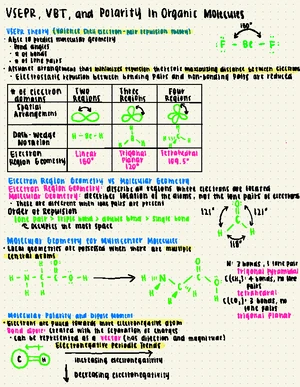 VSEPR, VBT, and Polarity In Organic Molecules
VSEPR Theory (Valence Shell electron-pair repulsion theory)
• Able to predict molecular geometry
• Bond angles
• # of bonds
• # of lone pairs
180°
:F - Be - F:
• Assumes arrangement that minimized repulsion therefore maximizing distance between electrons
• Electrostatic repulsion between bonding pairs and non-bonding pairs are reduced
# of electron domains
Two Regions
Three Regions
Four Regions
Spatial Arrangement
Dash-wedge Notation
H - Be - H
Electron Region Geometry
Linear 180°
Trigonal Planar 120°
Tetrahedral 109.5°
Electron Region Geometry vs Molecular Geometry
Electron Region Geometry: describes all regions where electrons are located
Molecular Geometry: describes location of the atoms, not the lone pairs of electrons
• These are different when lone pairs are present
Order of Repulsion
lone pair > triple bond > double bond > single bond
Occupies the most space
121°
121°
118°
Molecular Geometry for Multicenter Molecules
• Local geometries are perceived when there are multiple central atoms
N: 3 bonds, 1 lone pair
Trigonal pyramidal
bonds, no lone pairs
Tetrahedral
3 bonds, no lone pairs
Trigonal Planar
Molecular Polarity and Dipole Moment
• Electrons are pulled towards more electronegative atom
• Bond dipole: created with the separation of charges
• Can be represented as a vector (has direction and magnitude)
Electronegative Periodic Trends
C H
Increasing electronegativity
Decreasing electronegativity